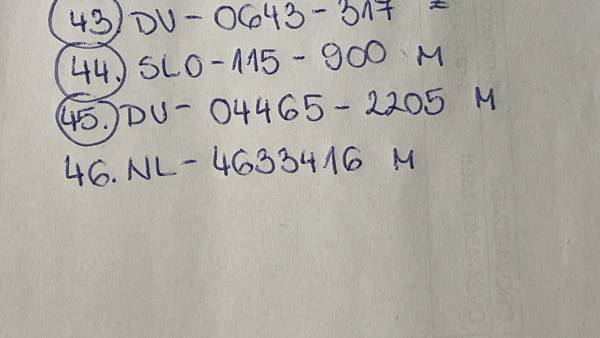 43) DV - 0643 - 317 Ž
44. SLO - 115 - 900 M
45. DV - 04465 - 2205 M
46. NL - 4633416 M